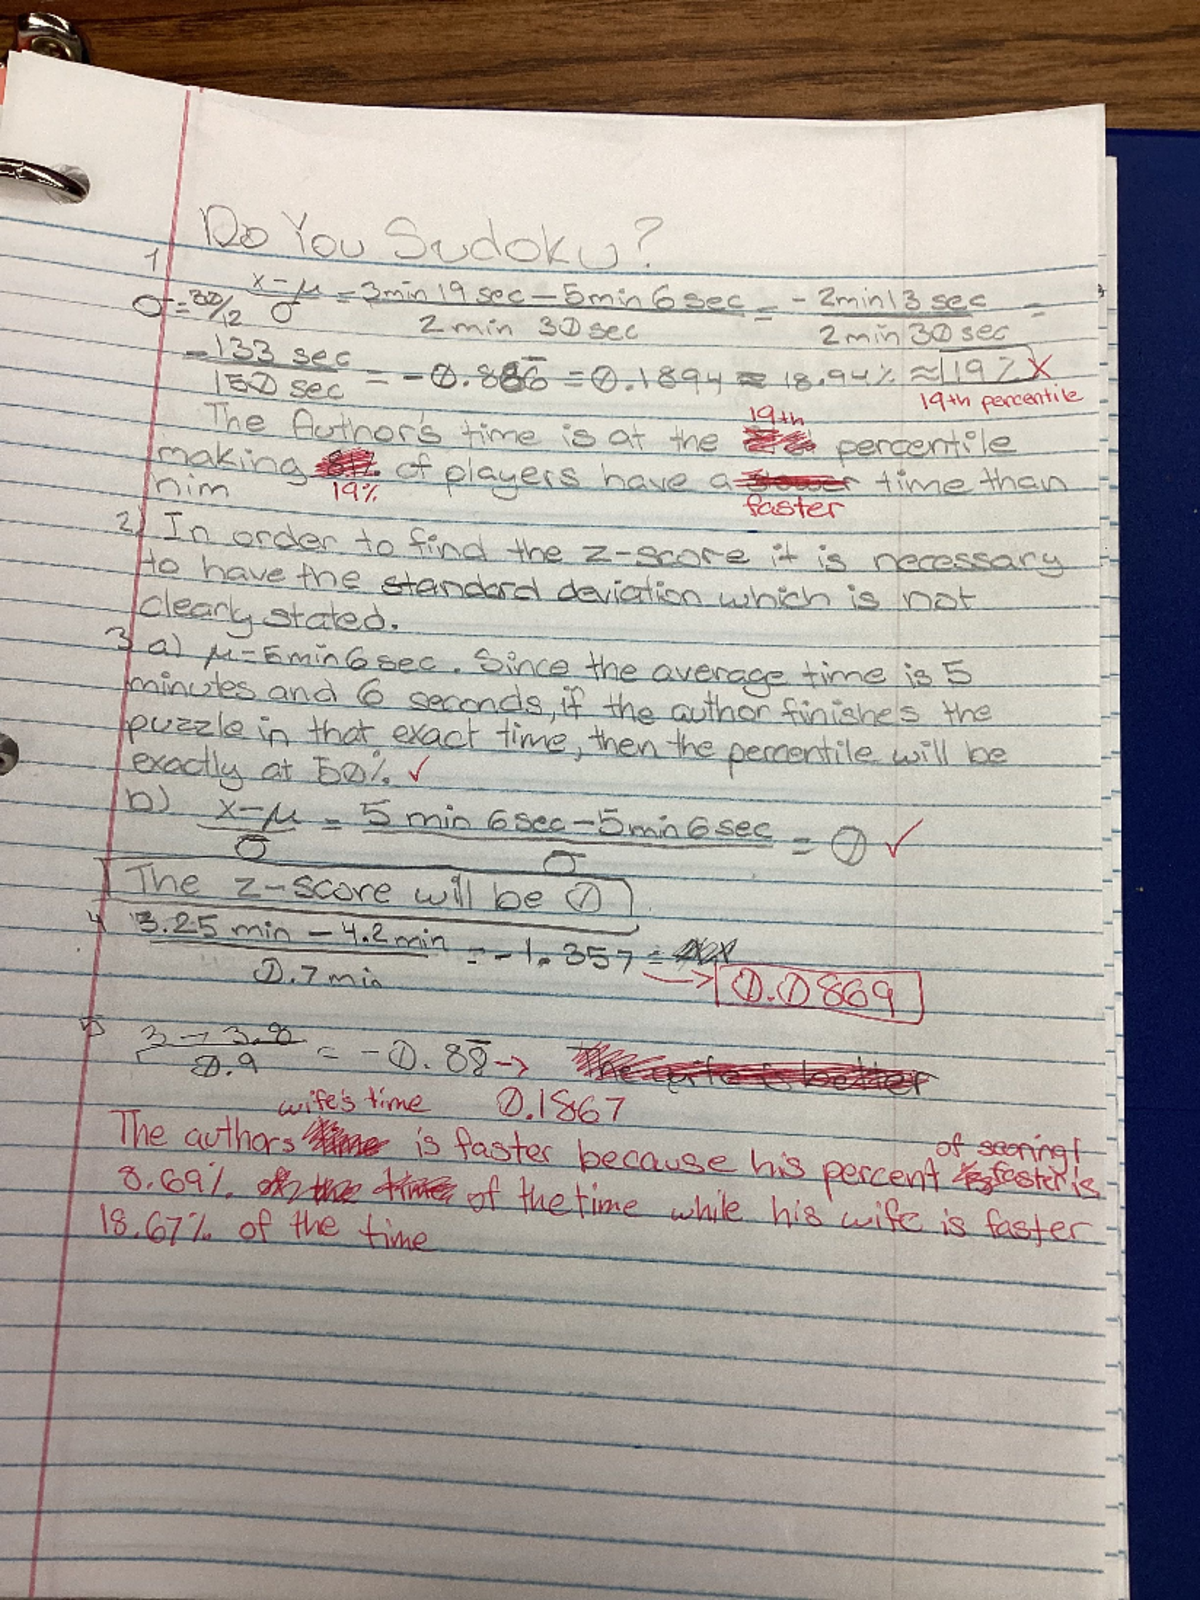 Do You Sudoku?
1)
x-μ/σ = 3min 19 sec - 5min 6 sec / 2 min 30 sec = -2min 13 sec / 2 min 30 sec =
-133 sec / 150 sec = -0.886 = 0.1894 ≈ 18.94% ≈ 19% X
19th percentile
The Author's time is at the 19th percentile
making 19% of players have a faster time than
him
2) In order to find the z-score it is necessary
to have the standard deviation which is not
clearly stated.
3 a) μ=5min 6 sec. Since the average time is 5
minutes and 6 seconds, if the author finishes the
puzzle in that exact time, then the percentile will be
exactly at 50% ✓
b) x-μ/σ = 5 min 6 sec - 5min 6 sec / σ = 0 ✓
The z-score will be 0
4) 3.25 min - 4.2 min / 0.7 min = -1.357 = → 0.0869
5 3 - 3.8 / 0.9 = -0.88 →
0.1867
The authors wife's time is faster because his percent of scoring faster is
8.69% of the time while his wife is faster
18.67% of the time